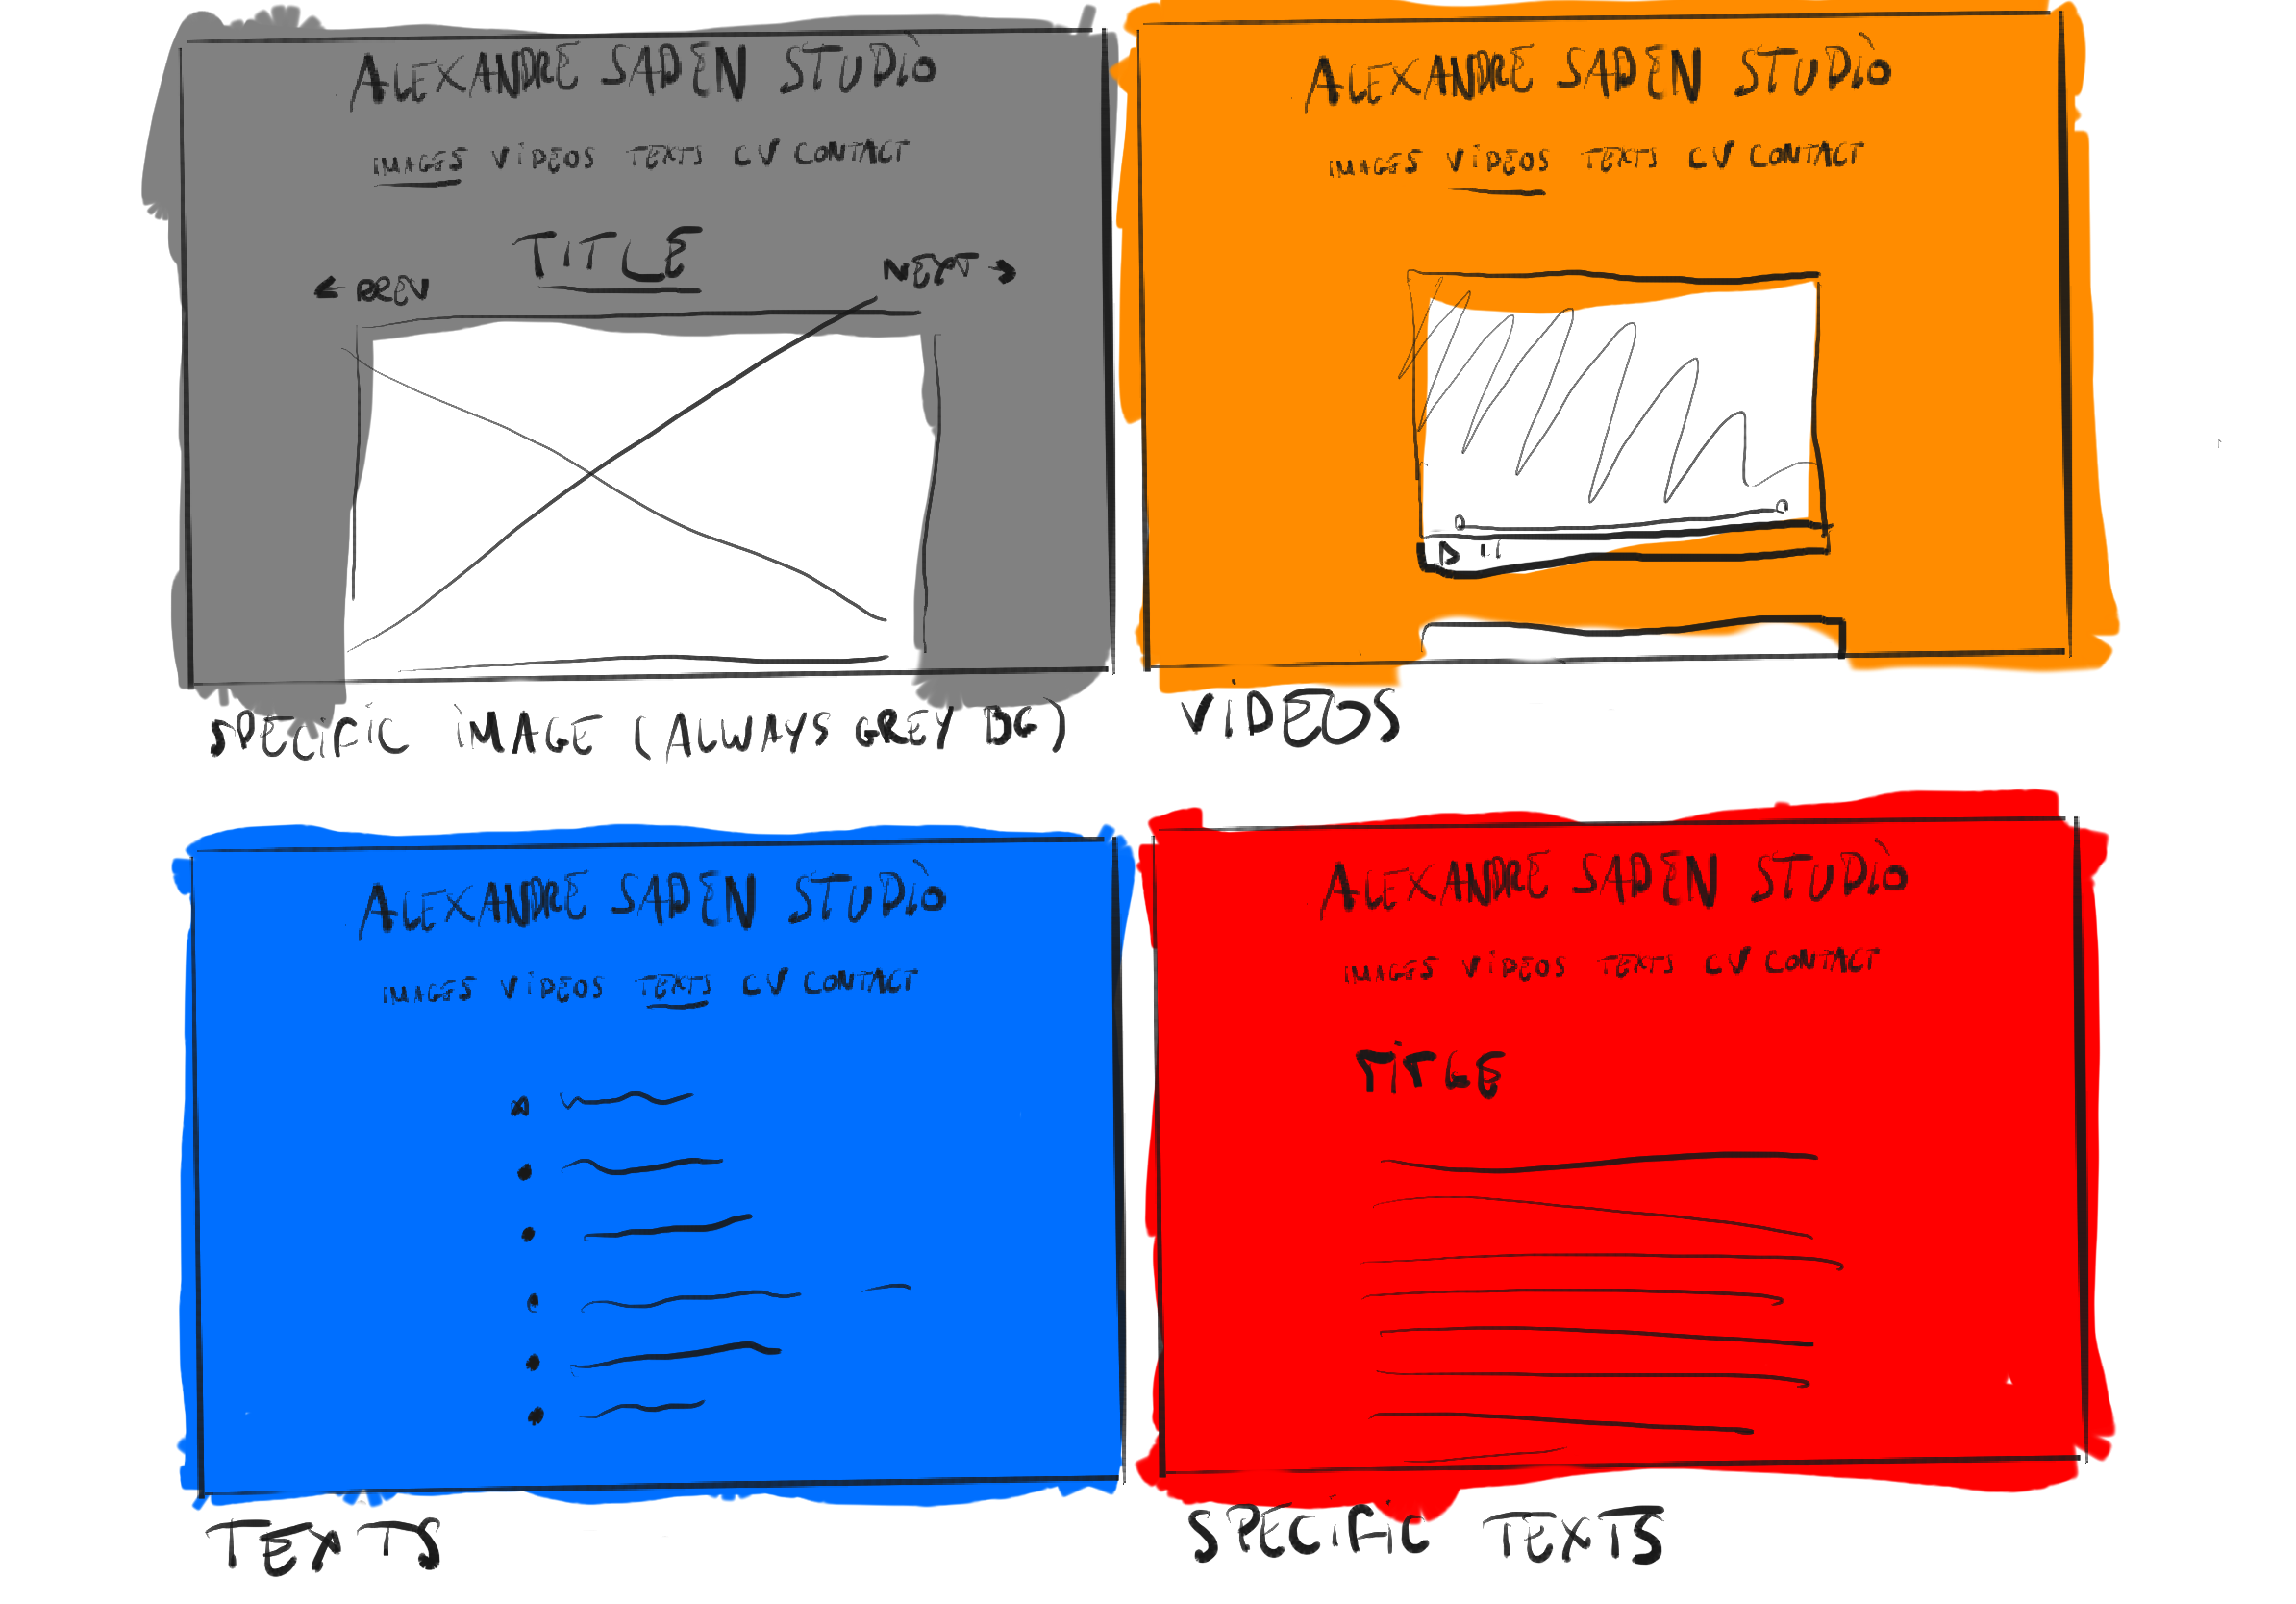 ALEXANDRE SADEN STUDiò
IMAGES ViDEOS TEXTS CV CONTACT
TITLE
← PREV
NEXT →
SPECiFiC iMAGE (ALWAYS GREY BG)
ALEXANDRE SADEN STUDiò
IMAGES ViDEOS TEXTS CV CONTACT
ViDEOS
ALEXANDRE SADEN STUDiò
IMAGES ViDEOS TEXTS CV CONTACT
TEXTS
ALEXANDRE SADEN STUDiò
IMAGES ViDEOS TEXTS CV CONTACT
TiTLE
SPECiFiC TEXTS